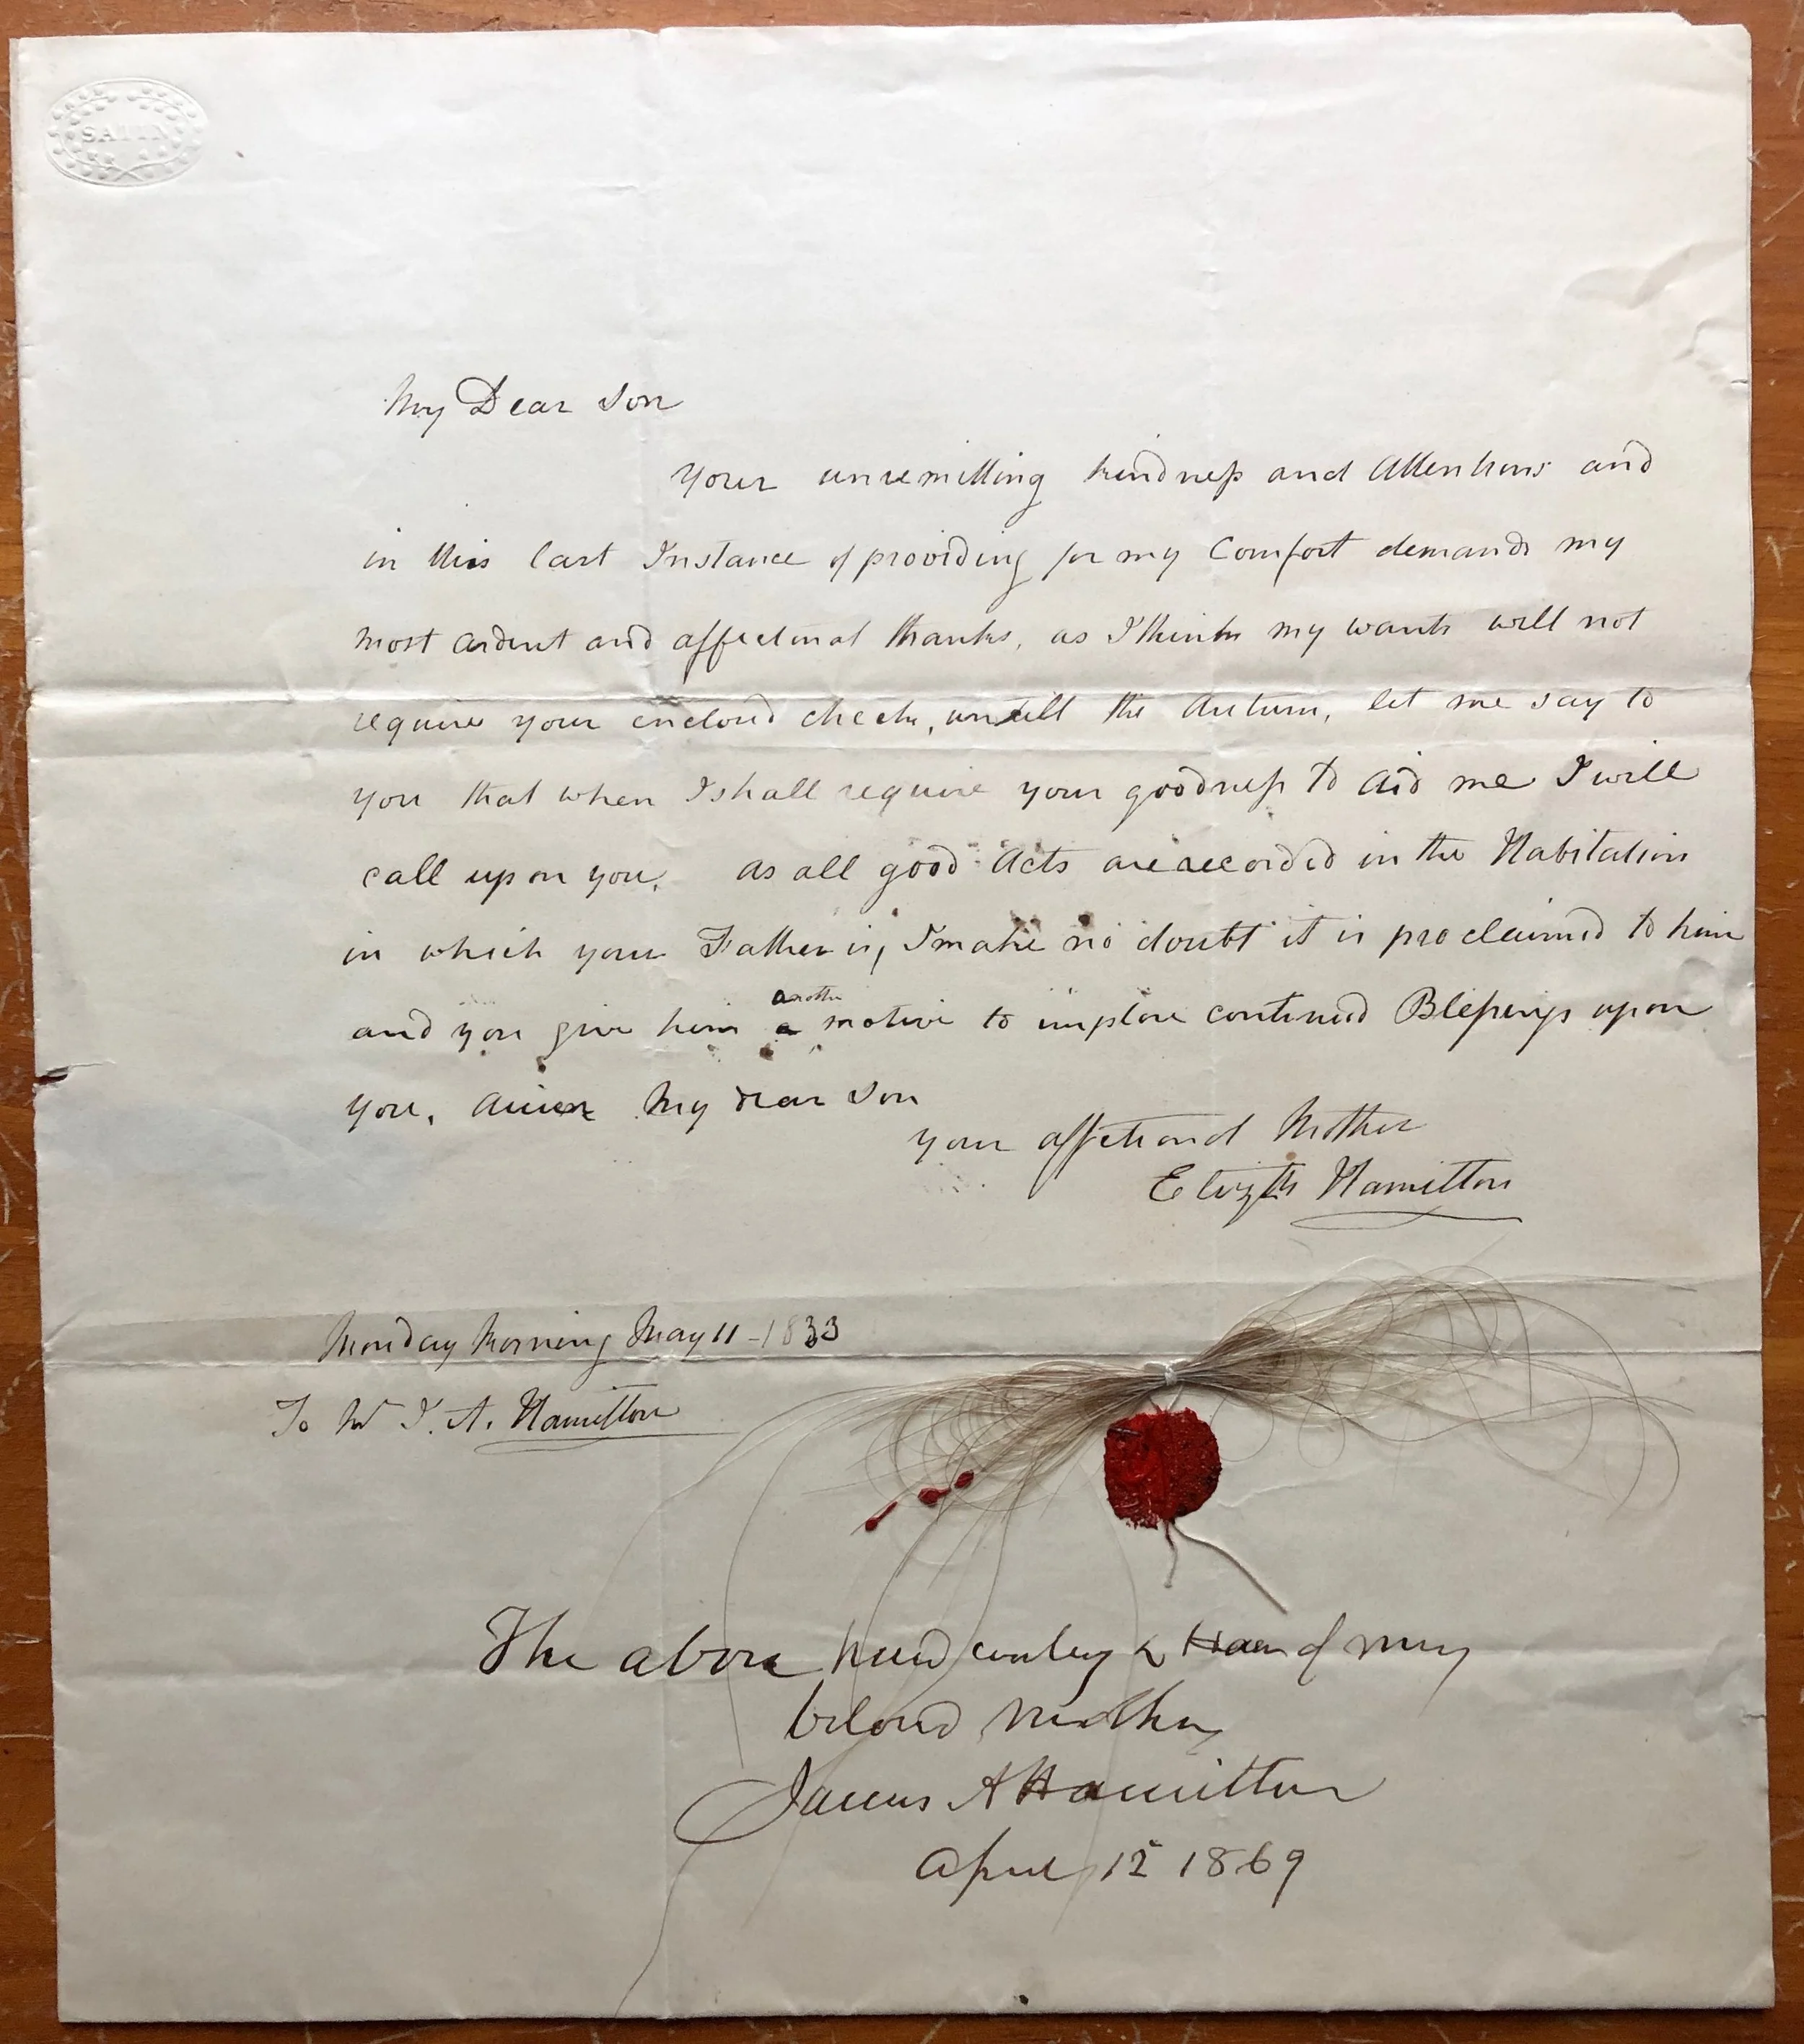 SATIN
My Dear Son
Your unremitting kindness and Attentions and
in this last Instance of providing for my Comfort demands my
most ardent and affectinat thanks, as I think my wants will not
require your enclosd check, untill the Autum, let me say to
you that when I shall require your goodness to aid me I will
call upon you. as all good Acts are recorded in the Habitation
in which your Father is, I make no doubt it is proclaimed to him
another
and you give him a motive to implore continued Blessings upon
you. Amen My dear Son
your affectionat Mother
Elizth Hamilton
Monday Morning May 11 - 1833
To Mr J. A. Hamilton
The above handwriting & Hair of my
beloved mother
James A Hamilton
April 12 1869